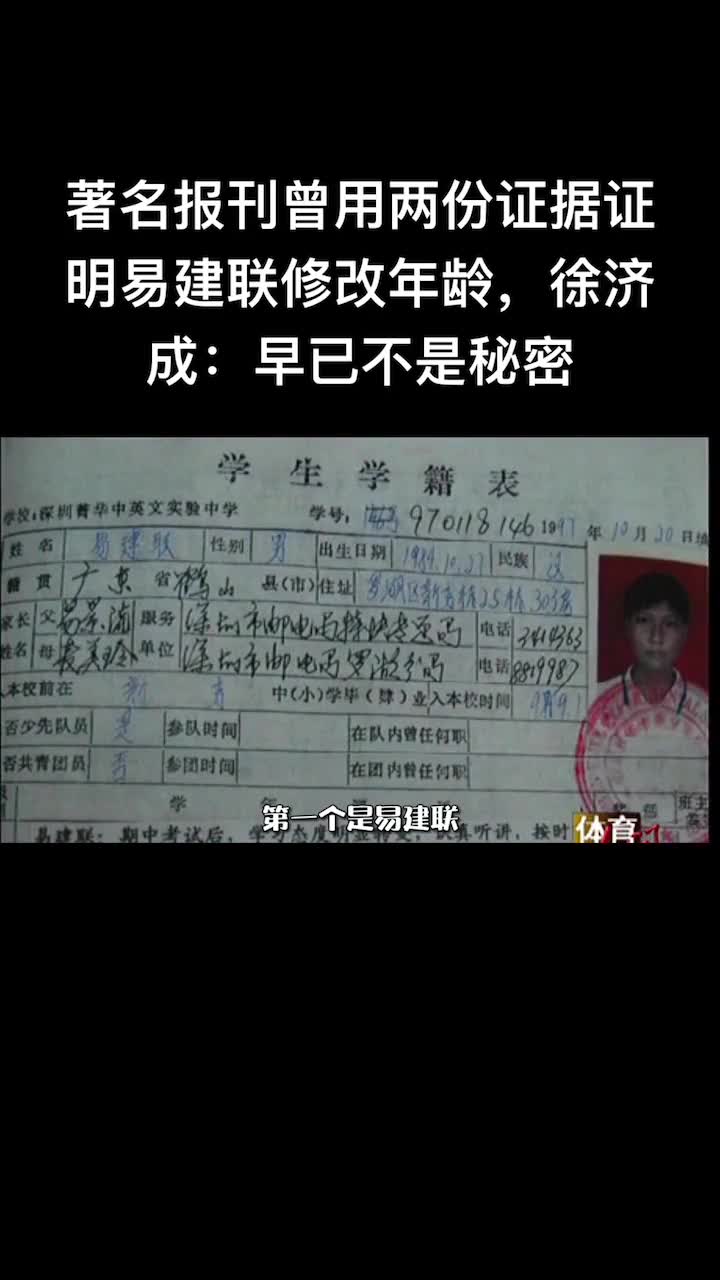 著名报刊曾用两份证据证
明易建联修改年龄，徐济
成：早已不是秘密
学生学籍表
学校：深圳菁华中英文实验中学 学号： 970118146 1997年10月20日填
姓名 易建联 性别 男 出生日期 1984.10.27 民族 汉
籍贯 广东省鹤山县(市) 住址
家长 父 易景流 服务 深圳市邮电局 电话 3414363
姓名 母 麦美玲 单位 深圳市邮电局罗湖分局 电话 8819987
入本校前在 新 中(小)学毕(肄)业 入本校时间 9月1
否少先队员 是 参队时间 在队内曾任何职
否共青团员 否 参团时间 在团内曾任何职
学
第一个是易建联
体育
易建联：期中考试后，学习态度明显转变，认真听讲，按时